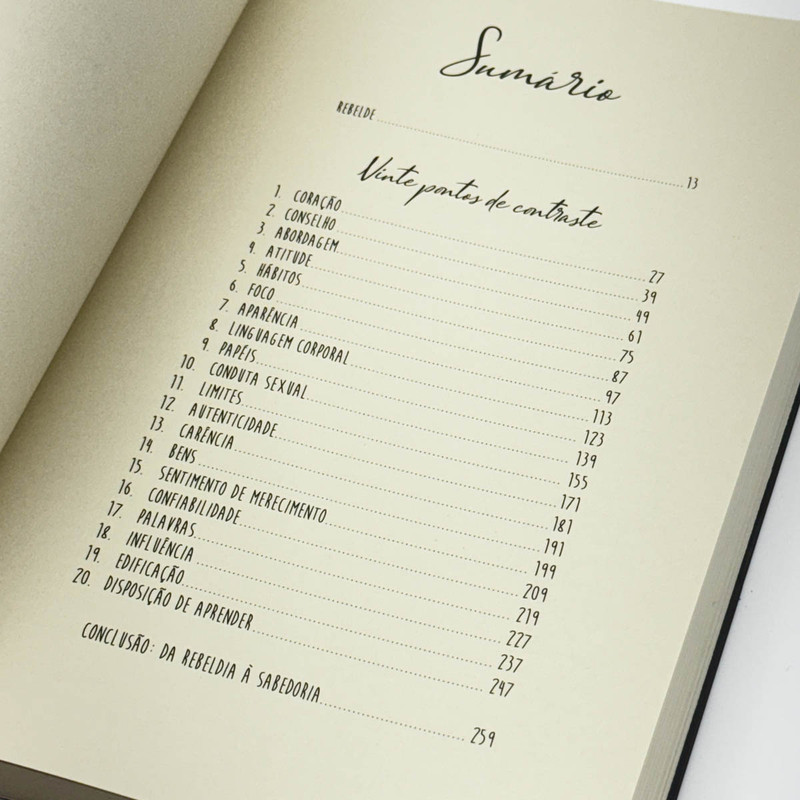 Sumário
REBELDE 13
Vinte pontos de contraste
1. CORAÇÃO 27
2. CONSELHO 39
3. ABORDAGEM 49
4. ATITUDE 61
5. HÁBITOS 75
6. FOCO 87
7. APARÊNCIA 97
8. LINGUAGEM CORPORAL 113
9. PAPÉIS 123
10. CONDUTA SEXUAL 139
11. LIMITES 155
12. AUTENTICIDADE 171
13. CARÊNCIA 181
14. BENS 191
15. SENTIMENTO DE MERECIMENTO 199
16. CONFIABILIDADE 209
17. PALAVRAS 219
18. INFLUÊNCIA 227
19. EDIFICAÇÃO 237
20. DISPOSIÇÃO DE APRENDER 247
CONCLUSÃO: DA REBELDIA À SABEDORIA 259